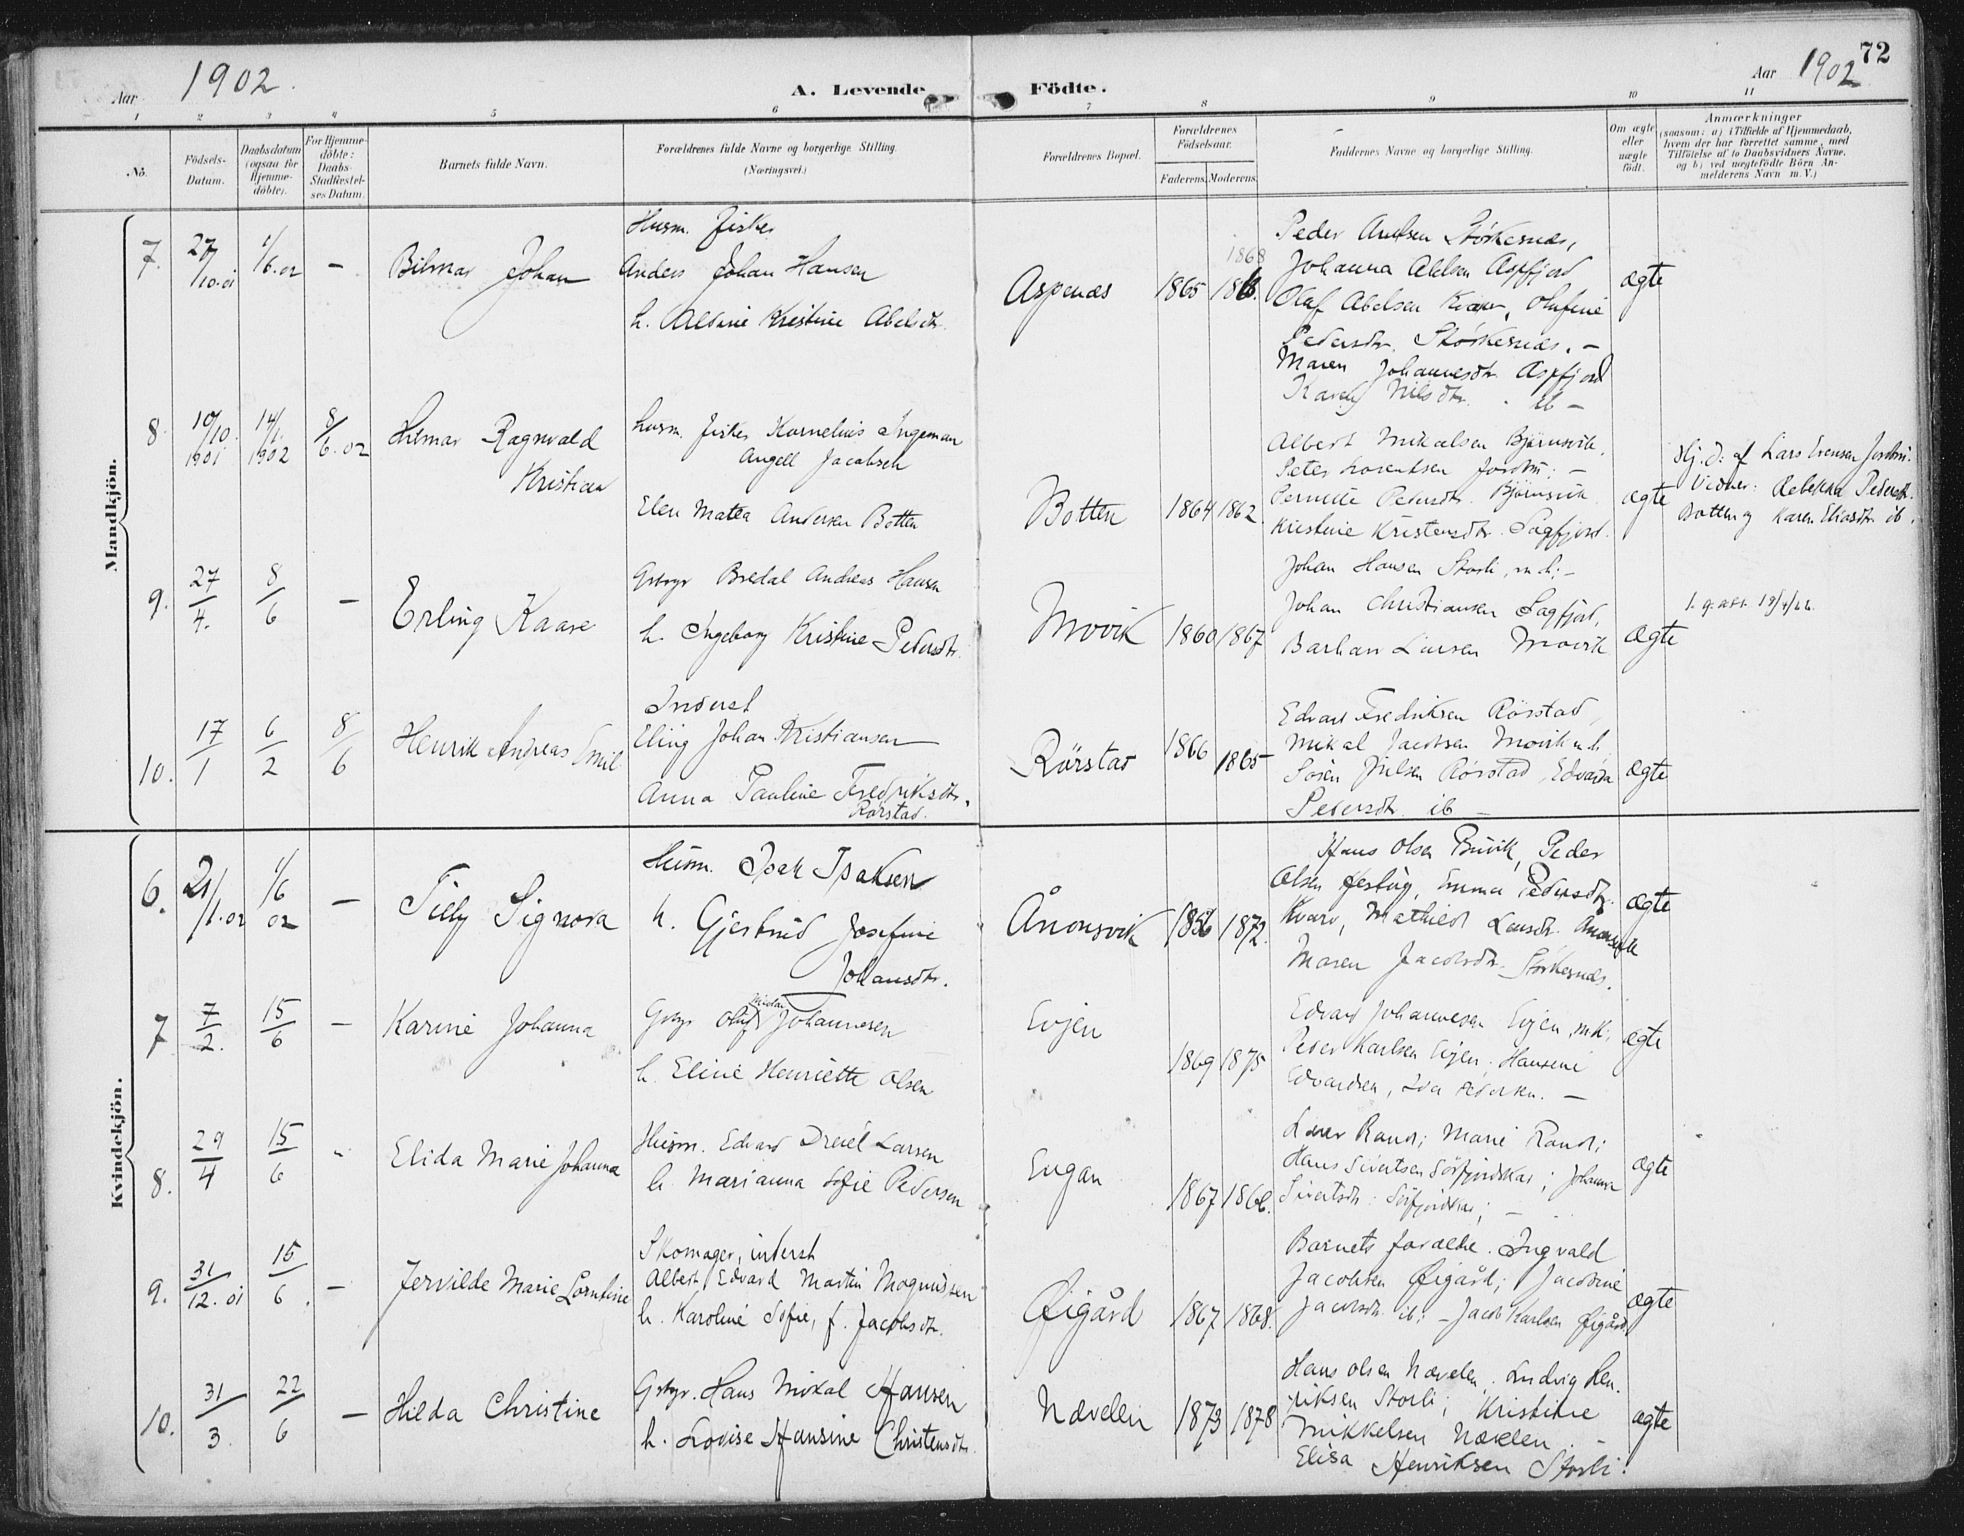 Aar 1902.
A. Levende Födte.
Aar 1902
72
1 2 3 4 5 6 7 8 9 10 11
No.
Födsels-
Datum.
Daabsdatum
(ogsaa for
Hjemme-
döbte).
For Hjemme-
döbte:
Daabs-
Stadfæstel-
ses Datum.
Barnets fulde Navn.
Forældrenes fulde Navne og borgerlige Stilling.
(Næringsvei.)
Forældrenes Bopæl.
Forældrenes
Födselsaar.
Faderens. Moderens.
Faddernes Navne og borgerlige Stilling.
Om ægte
eller
uægte
födt.
Anmærkninger
(saasom: a) i Tilfælde af Hjemmedaab,
hvem der har forrettet samme, med
Tilföielse af to Daabsvidners Navne,
og b) ved uægtefödte Börn An-
melderens Navn m. V.)
Mandkjön.
7. 27/10.01 1/6.02 - Bilmar Johan
Husm. fisker
Anders Johan Hansen
h. Aldine Kristine Abelsdtr.
Aspenæs 1865 1868
Peder Antsen Störkesnæs,
Johanna Abelsen Aspfjord
Olaf Abelsen Kvarv, Olufine
Pedersdtr. Störkesnæs. -
Maren Johannesdtr Aspfjord
Karen Nilsdtr. ib -
ægte
8. 10/10. 1901 14/1. 1902 8/6.02 Hilmar Ragnvald
Kristian
husm. fisker Kornelius Ingeman
Angell Jacobsen
Elen Matea Andersen Botten
Botten 1864 1862.
Albert Mikalsen Björnsvik.
Peter Lorentsen -
Pernille Pedersdtr. Björnsvik
Kristine Kristensdtr. Sagfjord.
ægte
Hj. d. af Lars Evensen
Vidner: Rebekka Pedersdtr.
Botten og Karen Eliasdtr ib.
9. 27/4. 8/6 - Erling Kaare
Grbgr Bredal Andreas Hansen
h. Ingeborg Kristine Pedersdtr.
Movik 1860 1867
Johan Hansen Storli, m. h; -
Johan Christiansen Sagfjord,
Larsen Movik
ægte
10. 17/1 6/2 8/6 Henrik Andreas Emil
Inderst
Eling Johan Kristiansen
Anna Pauline Fredriksdtr.
Rörstad.
Rörstad 1866 1865
Edvard Fredriksen Rörstad,
Mikal Jacobsen Movik m. h.
Sören Rörstad, Edvarda
Pedersdtr. ib -
ægte
Kvindekjön.
6. 21/1.02 1/6 02 - Tilly Signora
Husm. Isak Isaksen
h. Gjertrud Josefine
Johansdtr.
Ånonsvik 1856 1872.
Hans Olsen Buvik, Peder
Olsen Emma Pedersdtr.
Kvarv, Mathild Larsdtr. Anonsvik
Maren Jacobsdtr. Störkesnæs.
ægte
7 7/2. 15/6 - Karine Johanna
Grbgr Oluf Johannesen
h. Eline Henriette Olsen
Evjen 1869 1875
Edvard Johannesen Evjen, m. k;
Peder Karlsen Evjen; Hansine
Edvardsen, Ida Pedersen. -
ægte
8. 29/4 15/6 " Elida Marie Johanna
Husm. Edvard Larsen
h. Marianna Sofie Pedersen
Engan 1867 1868.
Randi; Marie Randi;
Hans Sivertsen Sörfjordskar; Johanna
Sivertsdtr. Sörfjordskar; -
ægte
9. 31/12.01 15/6. - Jervilde Marie Lorntine
Skomager, inderst
Albert Edvard Martin Mognussen
h. Karoline Sofie, f. Jacobsdtr.
Øigård 1867 1868.
Barnets forældre. Ingvald
Jacobsen Øigård; Jacobine
Jacobsdtr. ib; - Jacob Karlsen Øigård
ægte
10. 31/3. 22/6 - Hilda Christine
Grbgr. Hans Mikal Hansen
h. Lovise Hansine Christensdtr.
Nævelen 1873 1878
Hans Olsen Nævelen, Ludvig Hen-
riksen Storli; Kristine
Mikkelsen Nævelen. -
Elisa Henriksen Storli.
ægte